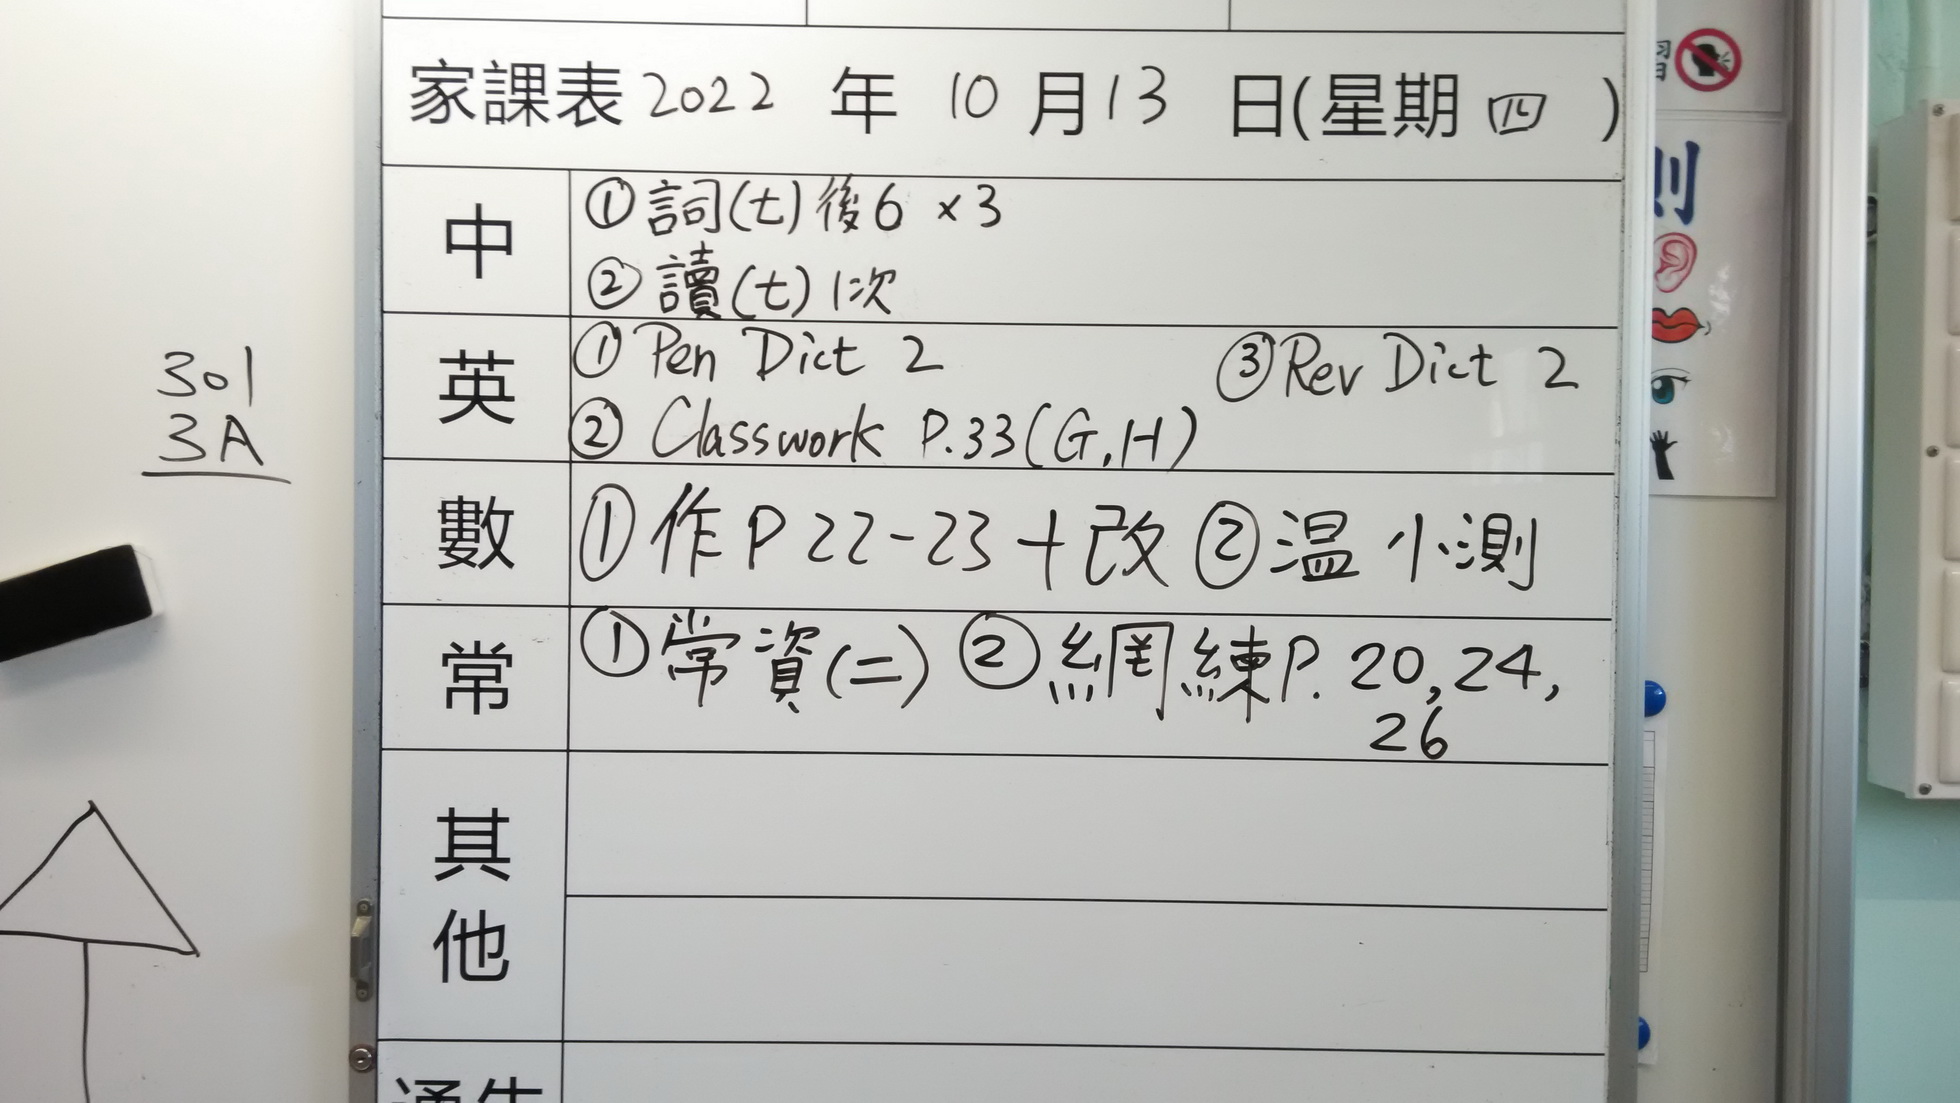 家課表 2022 年 10 月 13 日(星期 四 )
中
① 詞(七)後6 ×3
② 讀(七) 1次
英
① Pen Dict 2 ③ Rev Dict 2
② Classwork P.33(G,H)
數
① 作 P 22-23 + 改 ② 温 小測
常
① 常資(二) ② 網練 P. 20, 24,
26
其
他
通告
301
3A
習
則